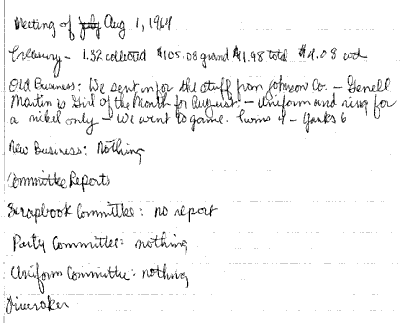 Meeting of July Aug 1, 1964
Treasury - 1.32 collected $105.08 grand $1.98 total $4.08
Old Business: We sent in for the stuff from Johnson Co. - Genell
Martin is Girl of the Month for August. - Uniform and ring for
a nikel only - We went to game. Twins 4 - Yanks 6
New Business: Nothing
Committee Reports
Scrapbook Committee: no report
Party Committee: nothing
Uniform Committee: nothing